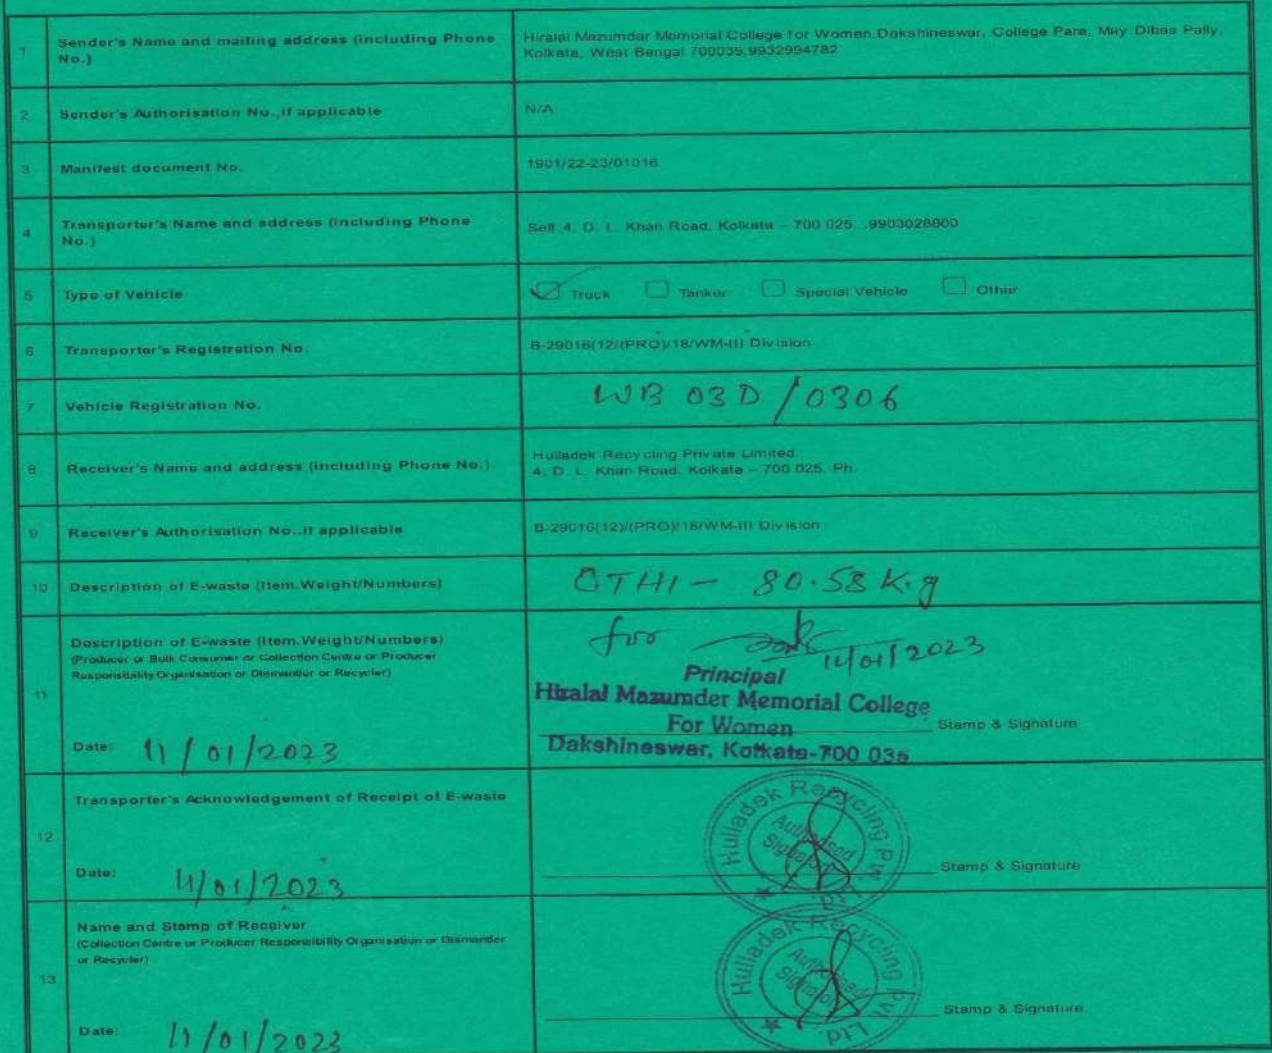 1 Sender's Name and mailing address (including Phone No.)
Hiralal Mazumdar Memorial College for Women,Dakshineswar, College Para, May Dibas Pally,
Kolkata, West Bengal 700035,9932994782
2 Sender's Authorisation No.,if applicable
N/A
3 Manifest document No.
1901/22-23/01016
4 Transporter's Name and address (including Phone No.)
Self ,4, D. L. Khan Road, Kolkata – 700 025, ,9903028800
5 Type of Vehicle
Truck Tanker Special Vehicle Other
6 Transporter's Registration No.
B-29016(12/(PRO)/18/WM-III Division
7 Vehicle Registration No.
WB 03D/0306
8 Receiver's Name and address (including Phone No.)
Hulladek Recycling Private Limited,
4, D. L. Khan Road, Kolkata – 700 025, Ph.
9 Receiver's Authorisation No.,if applicable
B-29016(12)/(PRO)/18/WM-III Division
10 Description of E-waste (Item,Weight/Numbers)
OTHI - 80.58 K.g
11 Description of E-waste (Item,Weight/Numbers)
(Producer or Bulk Consumer or Collection Centre or Producer
Responsibility Organisation or Dismantler or Recycler)
Date: 11/01/2023
for
11/01/2023
Principal
Hiralal Mazumder Memorial College
For Women
Stamp & Signature
Dakshineswer, Kolkata-700 035
12 Transporter's Acknowledgement of Receipt of E-waste
Date: 11/01/2023
Hulladek Recycling Pvt. Ltd.
Authorised
Signatory
Stamp & Signature
13 Name and Stamp of Receiver
(Collection Centre or Producer Responsibility Organisation or Dismantler
or Recycler)
Date: 11/01/2023
Hulladek Recycling Pvt. Ltd.
Authorised
Signatory
Stamp & Signature